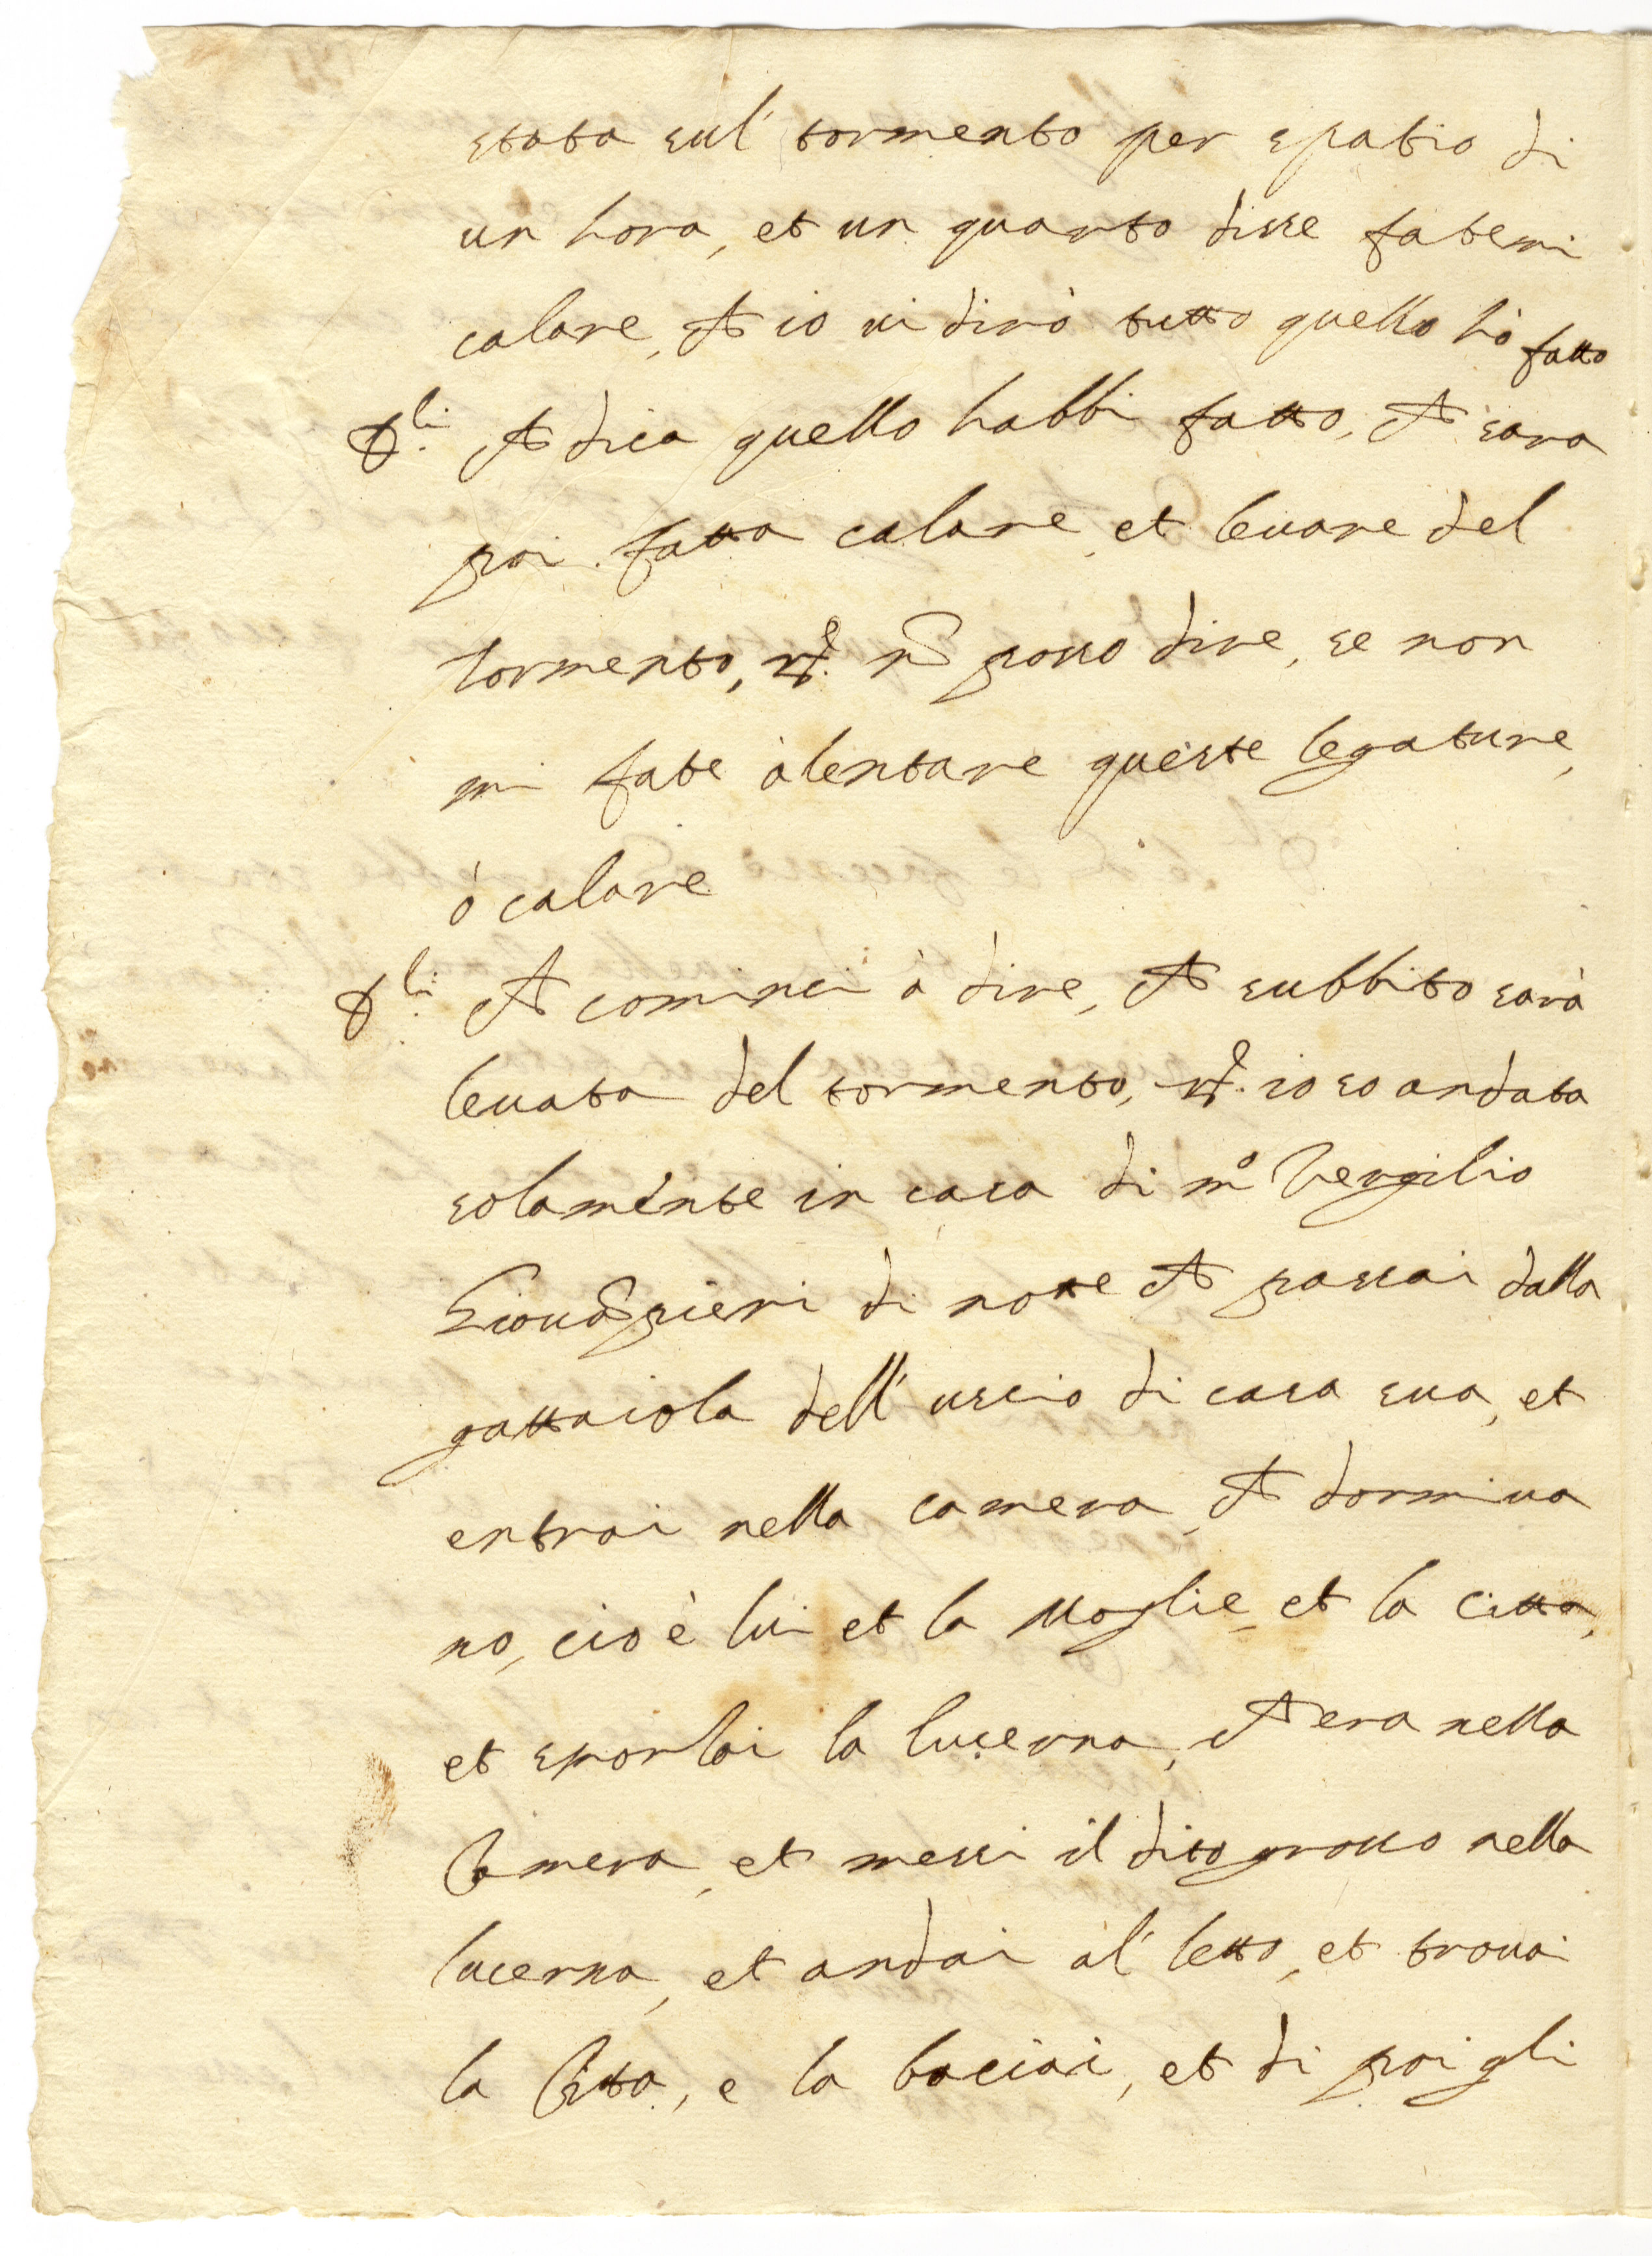 stata sul' tormento per spatio di
un hora, et un quarto disse fatemi
calare, ch io vi dirò tutto quello hò fatto
D.li ch dica quello habbi fatto, ch sara
poi fatta calare et levare del
tormento, Rd. nō posso dire, se non
mi fate àlentare queste legature,
ò calare
D.li ch cominci à dire, ch subbito sarà
levata del tormento, Rd. io so andata
solamente in casa di mo Vergilio
di notte ch passai dalla
gattaiola dell' uscio di casa sua, et
entrai nella camera, ch dormiva
no, cio è lui et la Moglie, et la Citta,
et sporlai la lucerna, ch era nella
Camera, et messi il dito grosso nella
lucerna, et andai al' letto, et trovai
la Citta, e la baciai, et di poi gli